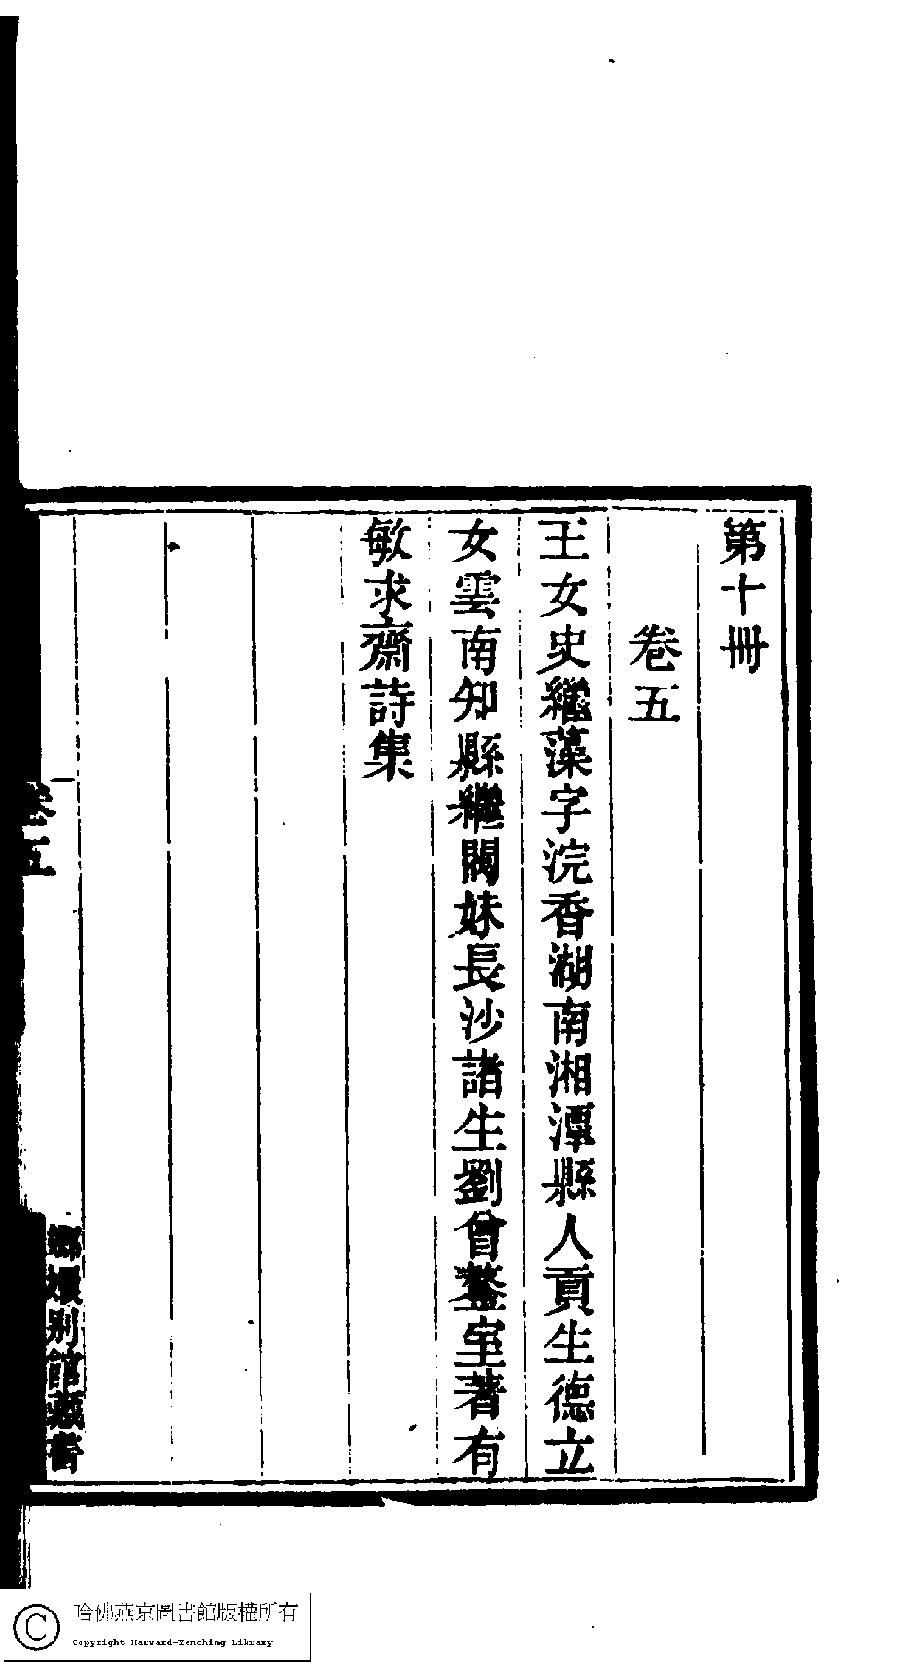 第十冊
卷五
王女史繼藻字浣香湖南湘潭縣人貢生德立
女雲南知縣繼閣妹長沙諸生劉曾鏊室著有
敏求齋詩集
卷五
嫏嬛別館藏書
哈佛燕京圖書館版權所有
Copyright Harvard-Yenching Library